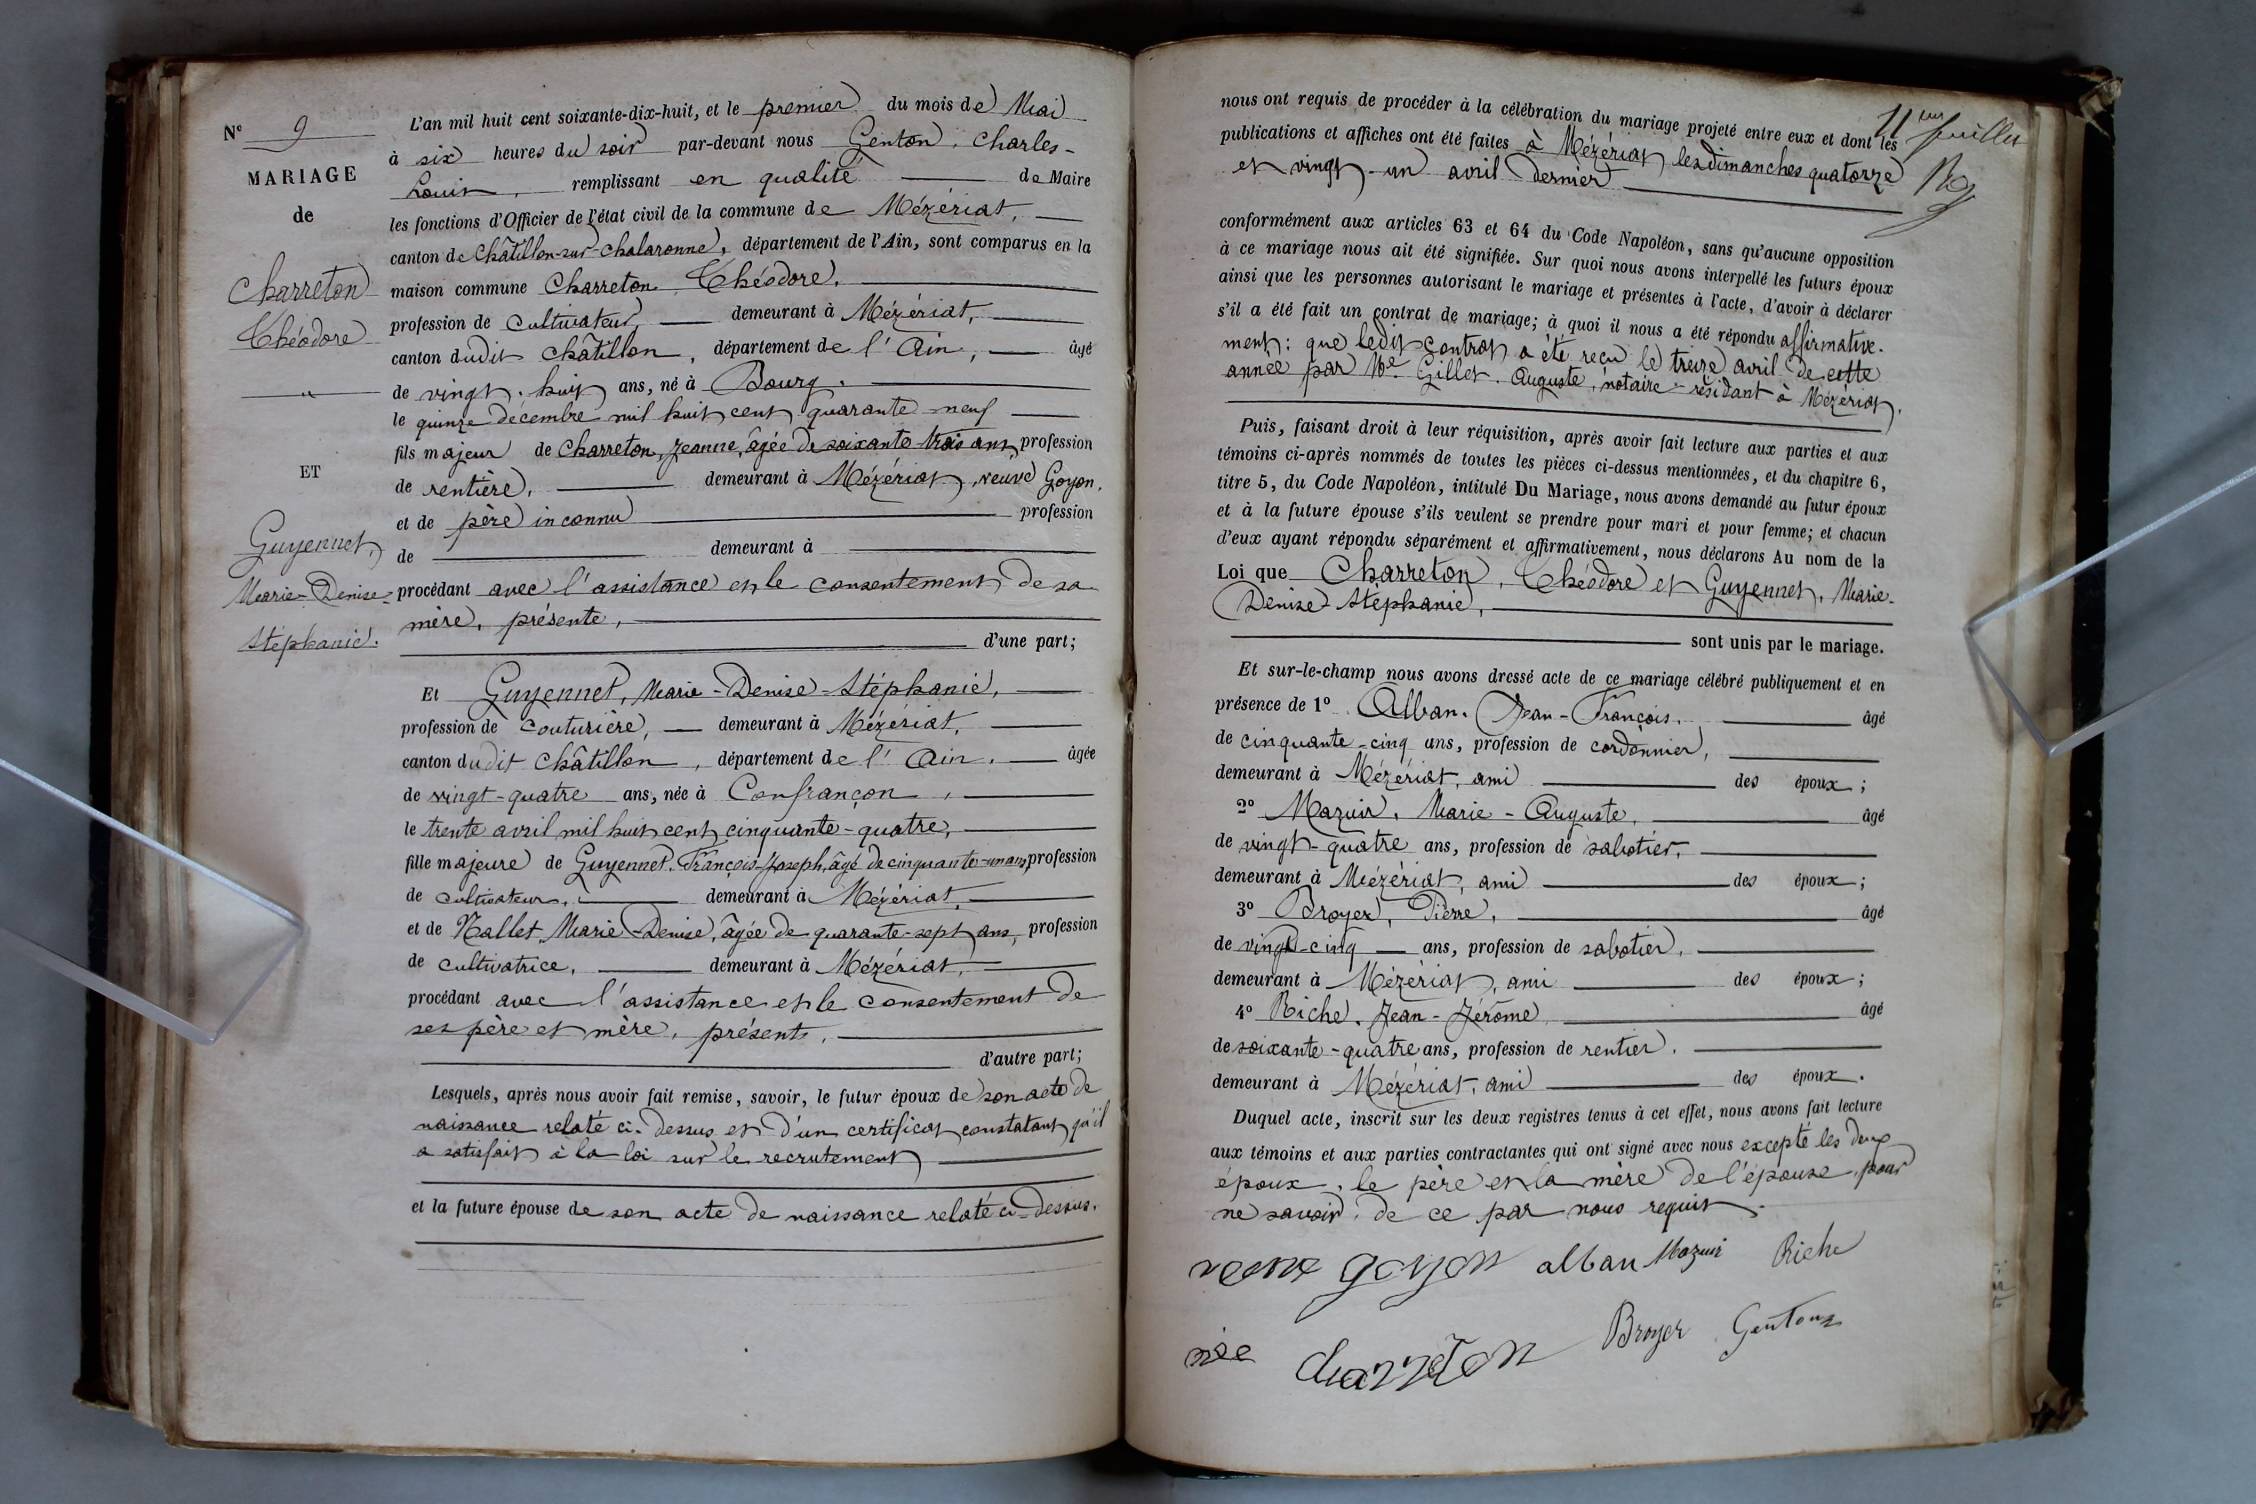 N° 9
MARIAGE
de
Charreton
Théodore
ET
Guyennet,
Marie-Denise-
Stéphanie.
L'an mil huit cent soixante-dix-huit, et le premier du mois de Mai
à six heures du soir par-devant nous Genton, Charles-
Louis, remplissant en qualité de Maire
les fonctions d'Officier de l'état civil de la commune de Mézériat,
canton de Châtillon-sur-Chalaronne, département de l'Ain, sont comparus en la
maison commune Charreton Théodore,
profession de cultivateur, demeurant à Mézériat,
canton dudit Châtillon, département de l'Ain, âgé
de vingt-huit ans, né à Bourg.
le quinze décembre mil huit cent quarante-neuf
fils majeur de Charreton, Jeanne, âgée de soixante-trois ans, profession
de rentière, demeurant à Mézériat, veuve Goyon,
et de père inconnu profession
de demeurant à
procédant avec l'assistance et le consentement de sa
mère, présente,
d'une part;
Et Guyennet, Marie-Denise-Stéphanie,
profession de couturière, demeurant à Mézériat,
canton dudit Châtillon, département de l'Ain, âgée
de vingt-quatre ans, née à Confrançon,
le trente avril mil huit cent cinquante-quatre,
fille majeure de Guyennet, François-Joseph, âgé de cinquante-un ans, profession
de cultivateur, demeurant à Mézériat,
et de Nallet, Marie Denise, âgée de quarante-sept ans, profession
de cultivatrice, demeurant à Mézériat,
procédant avec l'assistance et le consentement de
ses père et mère, présents,
d'autre part;
Lesquels, après nous avoir fait remise, savoir, le futur époux de son acte de
naissance relaté ci-dessus et d'un certificat constatant qu'il
a satisfait à la loi sur le recrutement
et la future épouse de son acte de naissance relaté ci-dessus.
11me feuillet
nous ont requis de procéder à la célébration du mariage projeté entre eux et dont les
publications et affiches ont été faites à Mézériat les dimanches quatorze
et vingt-un avril dernier
conformément aux articles 63 et 64 du Code Napoléon, sans qu'aucune opposition
à ce mariage nous ait été signifiée. Sur quoi nous avons interpellé les futurs époux
ainsi que les personnes autorisant le mariage et présentes à l'acte, d'avoir à déclarer
s'il a été fait un contrat de mariage; à quoi il nous a été répondu affirmative-
ment: que ledit contrat a été reçu le treize avril de cette
année par Me Gillet, Auguste, notaire résidant à Mézériat.
Puis, faisant droit à leur réquisition, après avoir fait lecture aux parties et aux
témoins ci-après nommés de toutes les pièces ci-dessus mentionnées, et du chapitre 6,
titre 5, du Code Napoléon, intitulé Du Mariage, nous avons demandé au futur époux
et à la future épouse s'ils veulent se prendre pour mari et pour femme; et chacun
d'eux ayant répondu séparément et affirmativement, nous déclarons Au nom de la
Loi que Charreton, Théodore et Guyennet, Marie-
Denise-Stéphanie,
sont unis par le mariage.
Et sur-le-champ nous avons dressé acte de ce mariage célébré publiquement et en
présence de 1° Alban, Jean-François, âgé
de cinquante-cinq ans, profession de cordonnier,
demeurant à Mézériat, ami des époux;
2° Mazuir, Marie-Auguste, âgé
de vingt-quatre ans, profession de sabotier,
demeurant à Mézériat, ami des époux;
3° Broyer, Pierre, âgé
de vingt-cinq ans, profession de sabotier,
demeurant à Mézériat, ami des époux;
4° Riche, Jean-Jérôme âgé
de soixante-quatre ans, profession de rentier,
demeurant à Mézériat, ami des époux.
Duquel acte, inscrit sur les deux registres tenus à cet effet, nous avons fait lecture
aux témoins et aux parties contractantes qui ont signé avec nous excepté les deux
époux, le père et la mère de l'épouse, pour
ne savoir, de ce par nous requis.
veuve goyon alban Mazuir Riche
née charreton Broyer Genton